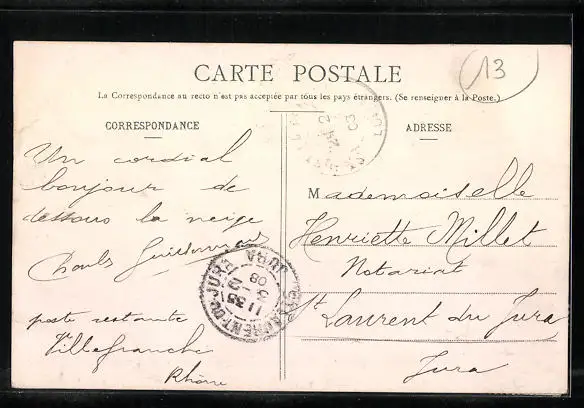 CARTE POSTALE
La Correspondance au recto n'est pas acceptée par tous les pays étrangers. (Se renseigner à la Poste.)
13
CORRESPONDANCE
Un cordial
bonjour de
dessous la neige
Charles
poste restante
Villefranche
Rhône
ADRESSE
Mademoiselle
Henriette Millet
Notariat
St Laurent du Jura
Jura
ST LAURENT-DU-JURA JURA
11 35
08